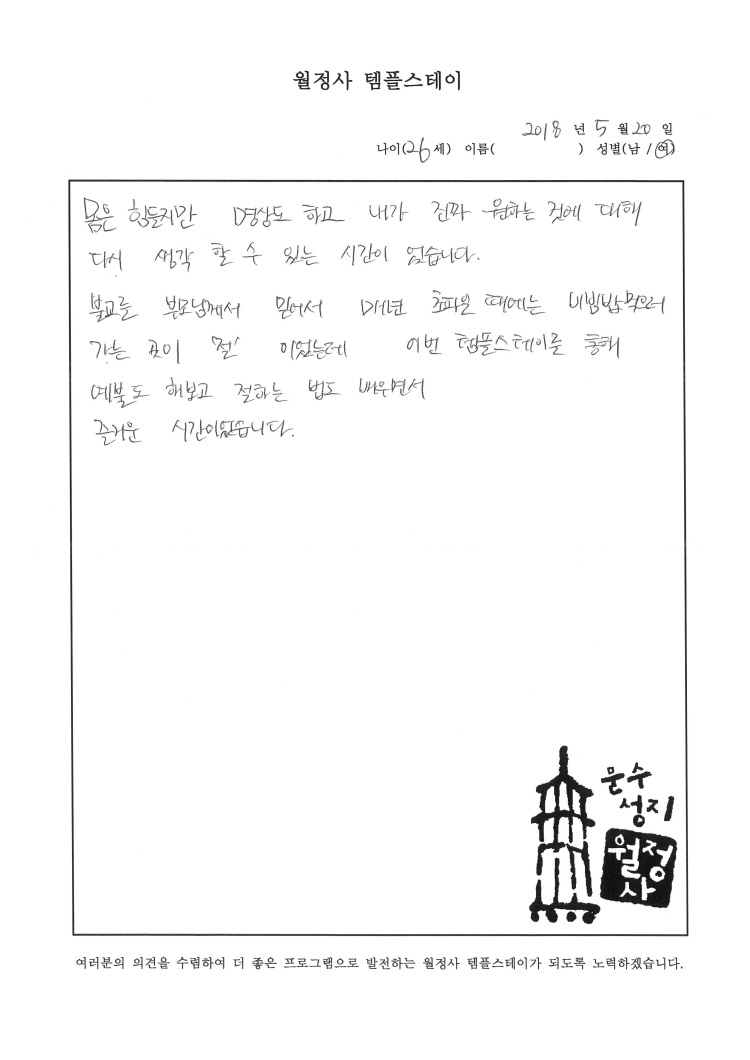 월정사 템플스테이
2018 년 5 월 20 일
나이(26 세) 이름( ) 성별(남 / 여)
몸은 힘들지만 명상도 하고 내가 진짜 원하는 것에 대해
다시 생각 할 수 있는 시간이 었습니다.
불교를 부모님께서 믿어서 매년 초파일 때에는 비빔밥 먹으러
가는 곳이 '절' 이었는데 이번 템플스테이를 통해
예불도 해보고 절하는 법도 배우면서
즐거운 시간이었습니다.
문수
성지
월정
사
여러분의 의견을 수렴하여 더 좋은 프로그램으로 발전하는 월정사 템플스테이가 되도록 노력하겠습니다.